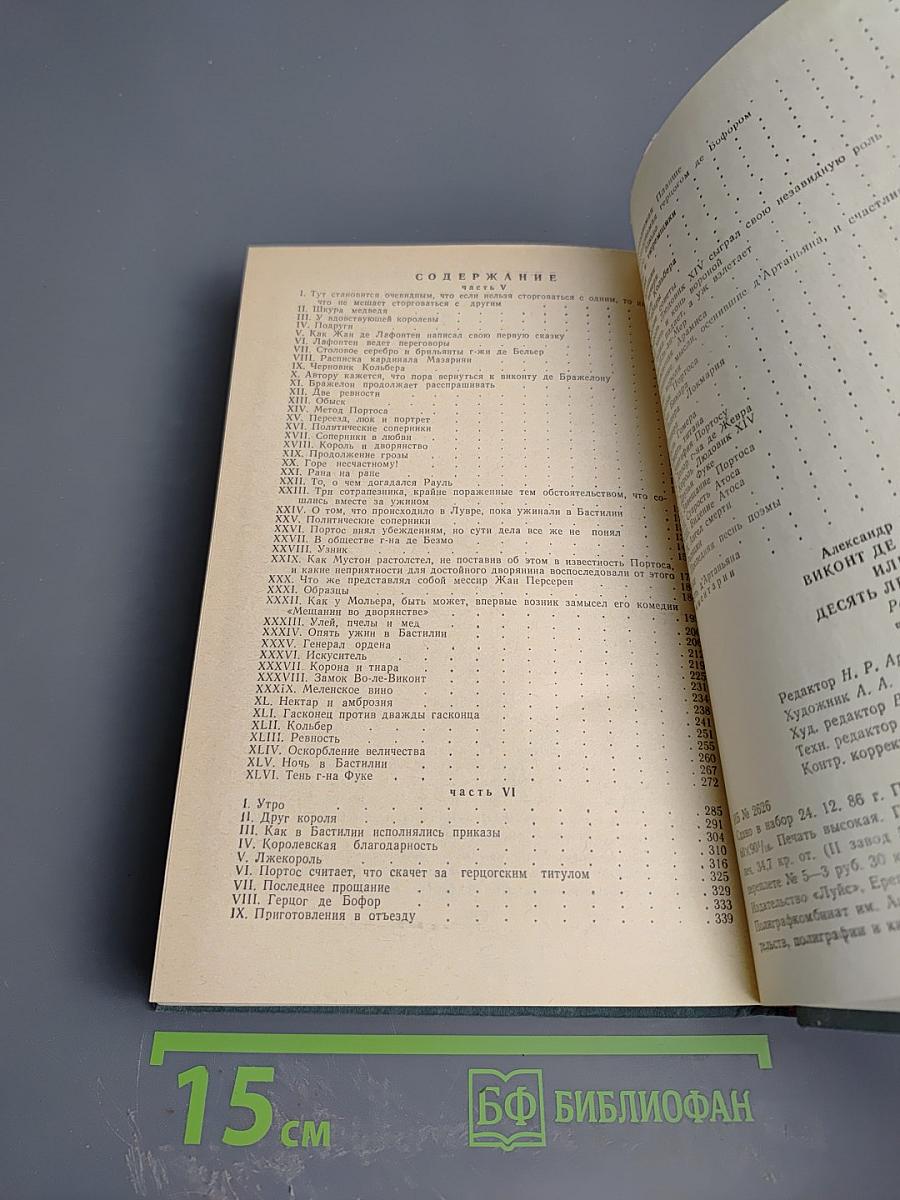 СОДЕРЖАНИЕ
часть V
I. Тут становится очевидным, что если нельзя сторговаться с одним, то
что не мешает сторговаться с другим
II. Шкура медведя
III. У вдовствующей королевы
IV. Подруги
V. Как Жан де Лафонтен написал свою первую сказку
VI. Лафонтен ведет переговоры
VII. Столовое серебро и брильянты г-жи де Бельер
VIII. Расписка кардинала Мазарини
IX. Черновик Кольбера
X. Автору кажется, что пора вернуться к виконту де Бражелону
XI. Бражелон продолжает расспрашивать
XII. Две ревности
XIII. Обыск
XIV. Метод Портоса
XV. Переезд, люк и портрет
XVI. Политические соперники
XVII. Соперники в любви
XVIII. Король и дворянство
XIX. Продолжение грозы
XX. Горе несчастному!
XXI. Рана на ране
XXII. То, о чем догадался Рауль
XXIII. Три сотрапезника, крайне пораженные тем обстоятельством, что со-
шлись вместе за ужином
XXIV. О том, что происходило в Лувре, пока ужинали в Бастилии
XXV. Политические соперники
XXVI. Портос внял убеждениям, но сути дела все же не понял
XXVII. В обществе г-на де Безмо
XXVIII. Узник
XXIX. Как Мустон растолстел, не поставив об этом в известность Портоса,
и какие неприятности для достойного дворянина воспоследовали от этого
XXX. Что же представлял собой мессир Жан Персерен
XXXI. Образцы
XXXII. Как у Мольера, быть может, впервые возник замысел его комедии
«Мещанин во дворянстве»
XXXIII. Улей, пчелы и мед
XXXIV. Опять ужин в Бастилии
XXXV. Генерал ордена
XXXVI. Искуситель
XXXVII. Корона и тиара 219
XXXVIII. Замок Во-ле-Виконт 225
XXXIX. Меленское вино 231
XL. Нектар и амброзия 234
XLI. Гасконец против дважды гасконца 238
XLII. Кольбер 241
XLIII. Ревность 251
XLIV. Оскорбление величества 255
XLV. Ночь в Бастилии 260
XLVI. Тень г-на Фуке 267
272
часть VI
I. Утро 285
II. Друг короля 291
III. Как в Бастилии исполнялись приказы 304
IV. Королевская благодарность 310
V. Лжекороль 316
VI. Портос считает, что скачет за герцогским титулом 325
VII. Последнее прощание 329
VIII. Герцог де Бофор 333
IX. Приготовления в отъезду 339
Планше
герцогом де Бофором
XIV сыграл свою незавидную роль
вороной
уж взлетает
Арамиса
мысли, осенившие д'Артаньяна, и счастли
Портоса
Локмария
Гомера
Портосу
г-на де Жевра
Король Людовик XIV
Фуке
Завещание Портоса
Старость Атоса
Видение Атоса
Ангел смерти
песнь поэмы
д'Артаньяна
Александр
ВИКОНТ ДЕ
ИЛИ
ДЕСЯТЬ ЛЕ
Редактор Н. Р. Ар
Художник А. А.
Худ. редактор
Техн. редактор
Контр. коррект
ИБ № 2626
Сдано в набор 24. 12. 86 г.
60×90 1/16. Печать высокая.
печ. 34,7 кр. от. (II завод
переплете № 5—3 руб. 30 к
Издательство «Луйс», Ере
Полиграфкомбинат им. А
дельств, полиграфии и к
15 см
БФ БИБЛИОФАН